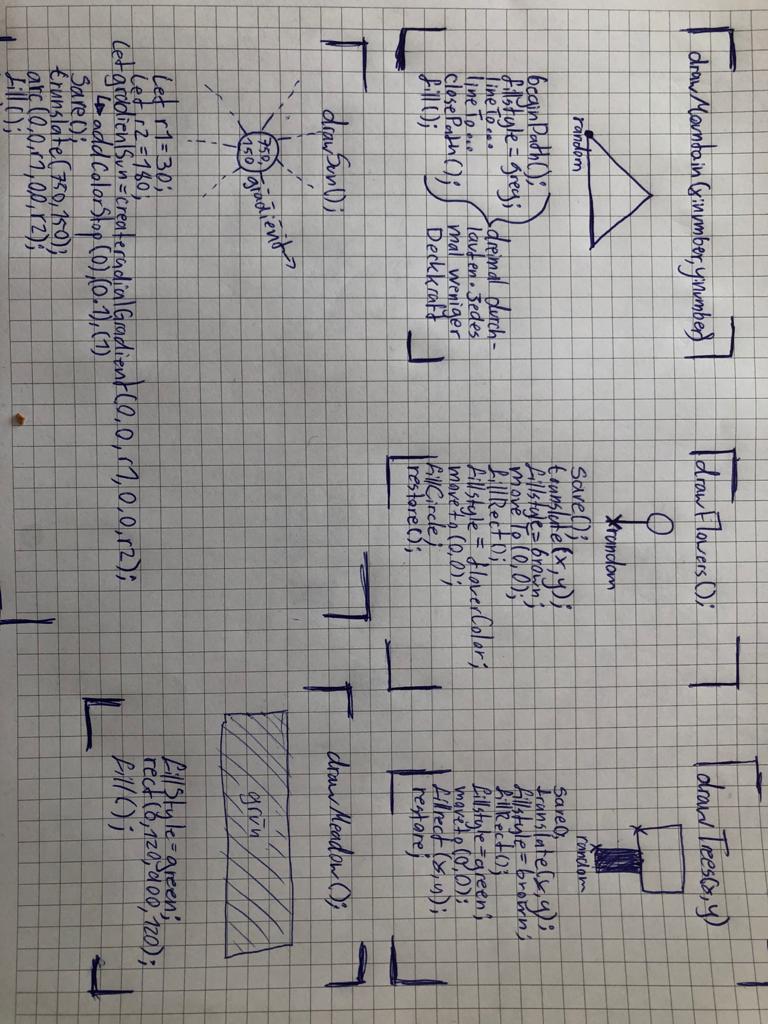 drawMountain(x:number,y:number)
random
beginPath();
fillstyle = grey;
lineto...
lineto...
closePath();
fill();
dreimal durch-
laufen. Jedes
mal weniger
Deckkraft
drawFlowers();
random
Save();
translate(x,y);
fillstyle=brown;
moveTo (0,0);
fillRect();
fillstyle = flowerColor;
moveto (0,0);
fillCircle;
restore();
drawTrees(x,y)
random
save();
translate(x,y);
fillstyle=brown;
fillRect();
fillstyle=green;
moveto(0,0);
fillrect (x,y);
restore;
drawSun();
750,
150
gradient
Let r1=30;
Let r2=180;
let gradienSun=createradialGradient(0,0,r1,0,0,r2);
addColorStop (0),(0.1),(1)
Save();
translate(750,150);
arc(0,0,r1,0,0,r2);
fill();
drawMeadow();
grün
fillstyle=green;
fill();